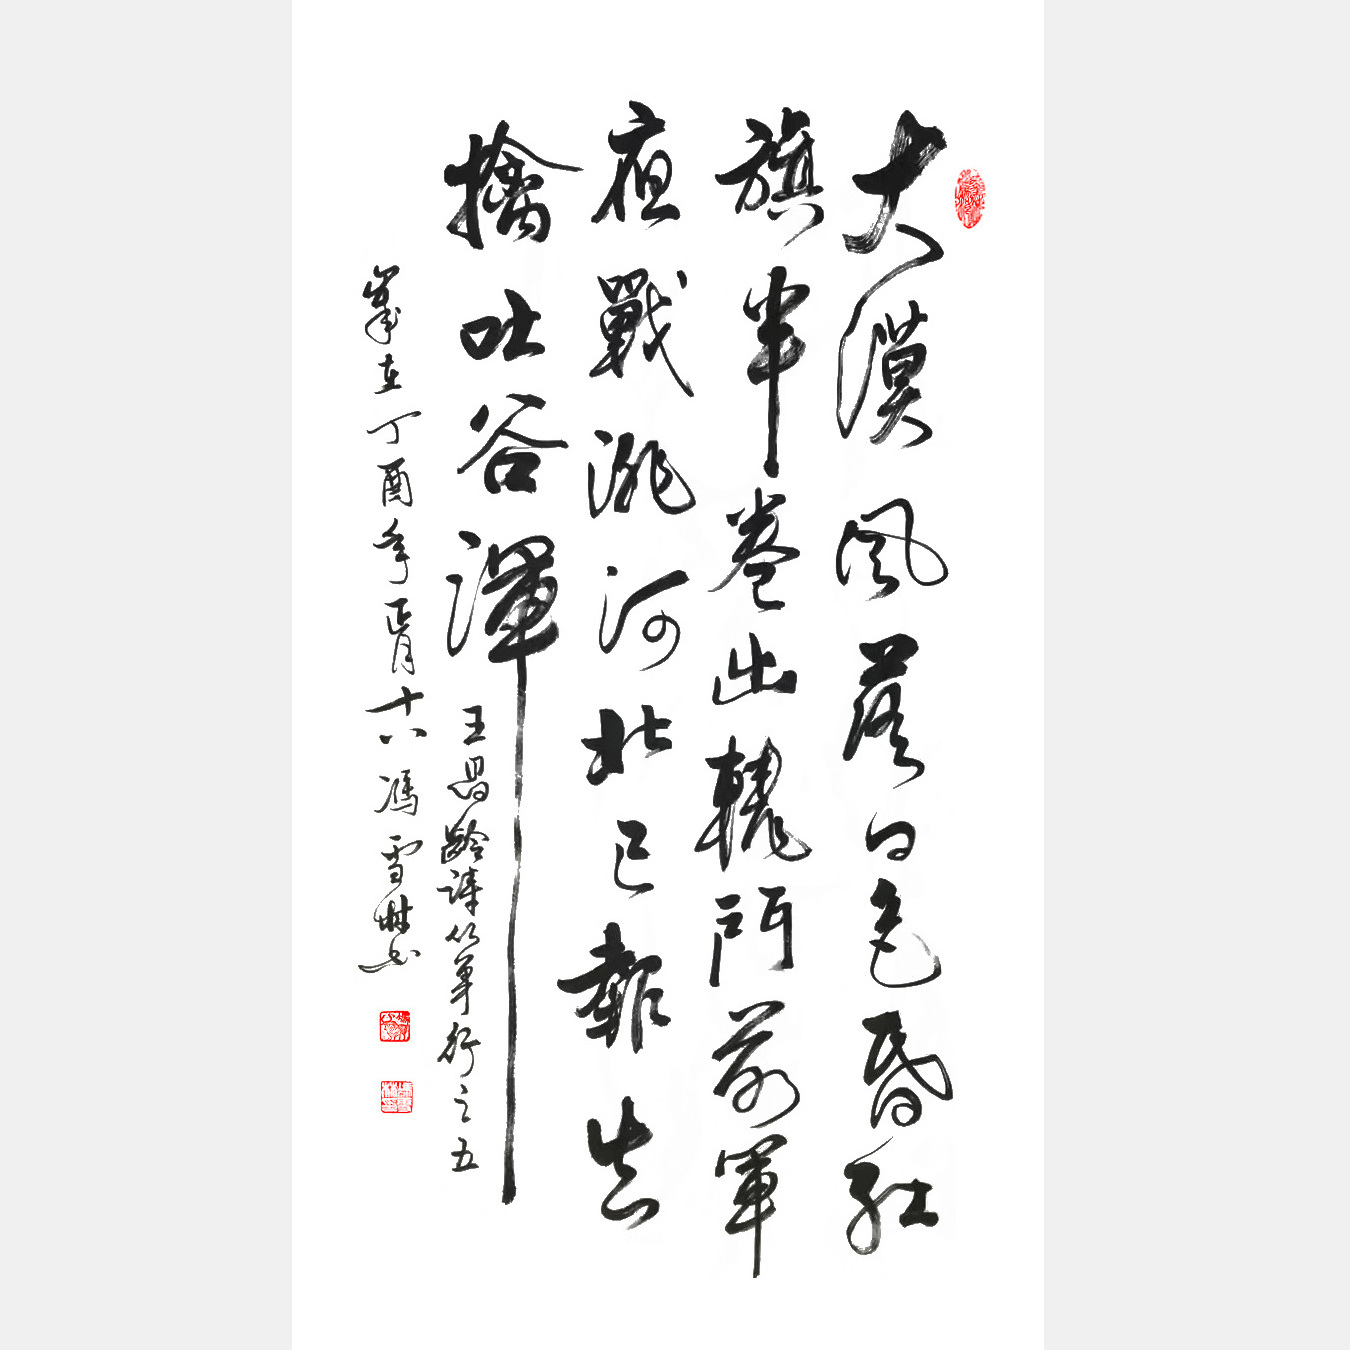 大漠風塵日色昏紅
旗半卷出轅門前軍
夜戰洮河北已報生
擒吐谷渾
王昌齡詩從軍行之五
歲在丁酉年正月十八馮雪林書